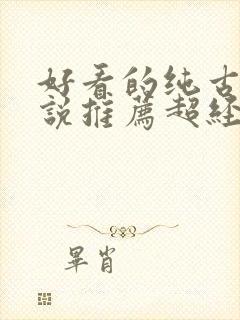 好看的纯古
说推薦超经
畢肖